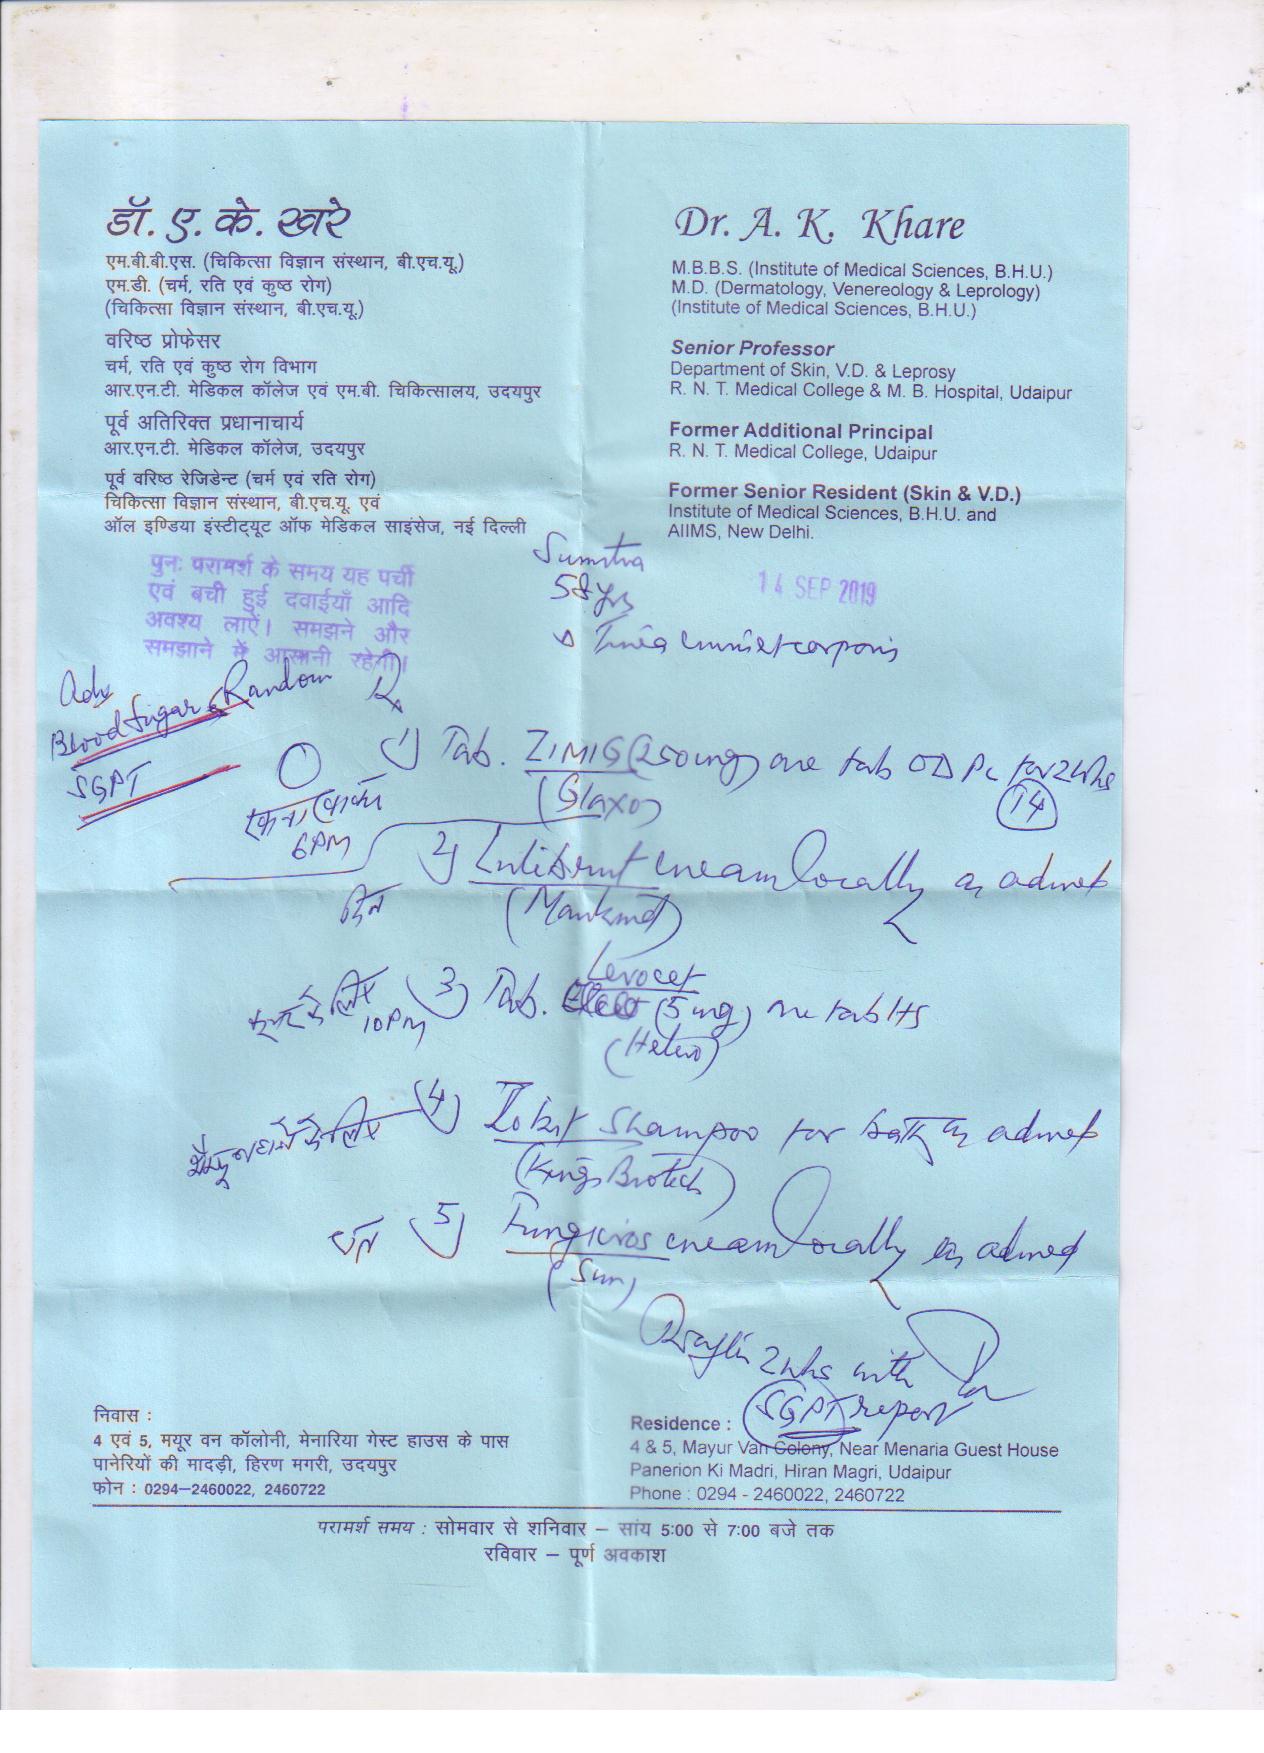 डॉ. ए. के. खरे
एम.बी.बी.एस. (चिकित्सा विज्ञान संस्थान, बी.एच.यू.)
एम.डी. (चर्म, रति एवं कुष्ठ रोग)
(चिकित्सा विज्ञान संस्थान, बी.एच.यू.)
वरिष्ठ प्रोफेसर
चर्म, रति एवं कुष्ठ रोग विभाग
आर.एन.टी. मेडिकल कॉलेज एवं एम.बी. चिकित्सालय, उदयपुर
पूर्व अतिरिक्त प्रधानाचार्य
आर.एन.टी. मेडिकल कॉलेज, उदयपुर
पूर्व वरिष्ठ रेजिडेन्ट (चर्म एवं रति रोग)
चिकित्सा विज्ञान संस्थान, बी.एच.यू. एवं
ऑल इण्डिया इंस्टीट्यूट ऑफ मेडिकल साइंसेज, नई दिल्ली
Dr. A. K. Khare
M.B.B.S. (Institute of Medical Sciences, B.H.U.)
M.D. (Dermatology, Venereology & Leprology)
(Institute of Medical Sciences, B.H.U.)
Senior Professor
Department of Skin, V.D. & Leprosy
R. N. T. Medical College & M. B. Hospital, Udaipur
Former Additional Principal
R. N. T. Medical College, Udaipur
Former Senior Resident (Skin & V.D.)
Institute of Medical Sciences, B.H.U. and
AIIMS, New Delhi.
पुनः परामर्श के समय यह पर्ची
एवं बची हुई दवाईयाँ आदि
अवश्य लाऐं। समझने और
समझाने में आसानी रहेगी।
Sumitra
58 yrs
14 SEP 2019
Tinea cruris et corporis
Adv
Blood Sugar Random
SGPT
Rx
1) Tab. ZIMIG (250mg) one tab OD Pc for 2 wks
(Glaxo) 14
6 PM
2) cream locally as advised
दिन (Mankind)
Levocet
3) Tab. (5 mg) one tab HS
के लिए 10 PM (Hetero)
4) Shampoo for bath as advised
नहाने के लिए (Kings Biotech)
5) Fungicros cream locally as advised
(Sun)
2 wks with
SGPT report
निवास :
4 एवं 5, मयूर वन कॉलोनी, मेनारिया गेस्ट हाउस के पास
पानेरियों की मादड़ी, हिरण मगरी, उदयपुर
फोन : 0294–2460022, 2460722
Residence :
4 & 5, Mayur Van Colony, Near Menaria Guest House
Panerion Ki Madri, Hiran Magri, Udaipur
Phone : 0294 - 2460022, 2460722
परामर्श समय : सोमवार से शनिवार – सांय 5:00 से 7:00 बजे तक
रविवार – पूर्ण अवकाश